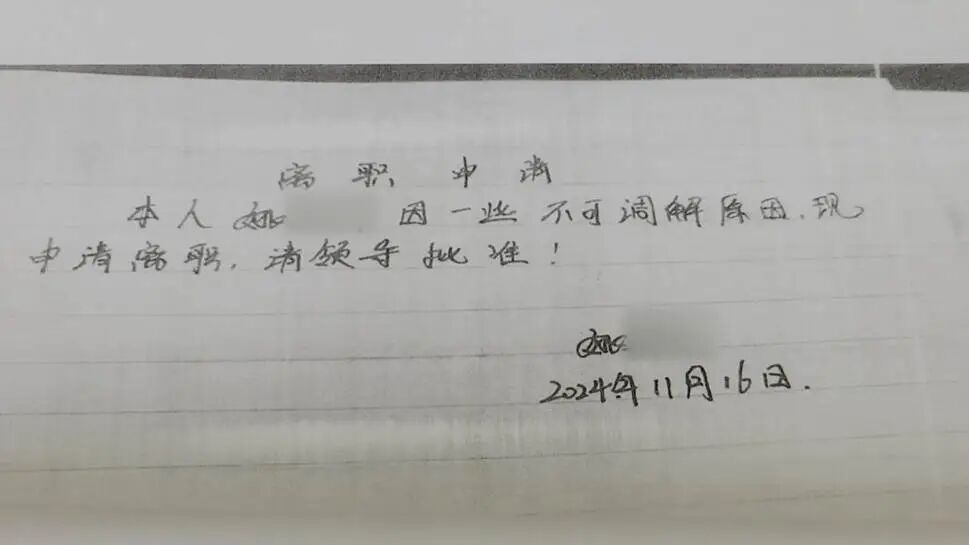 离职申请
本人姚 因一些不可调解原因,现
申请离职,请领导批准!
姚
2024年11月16日.